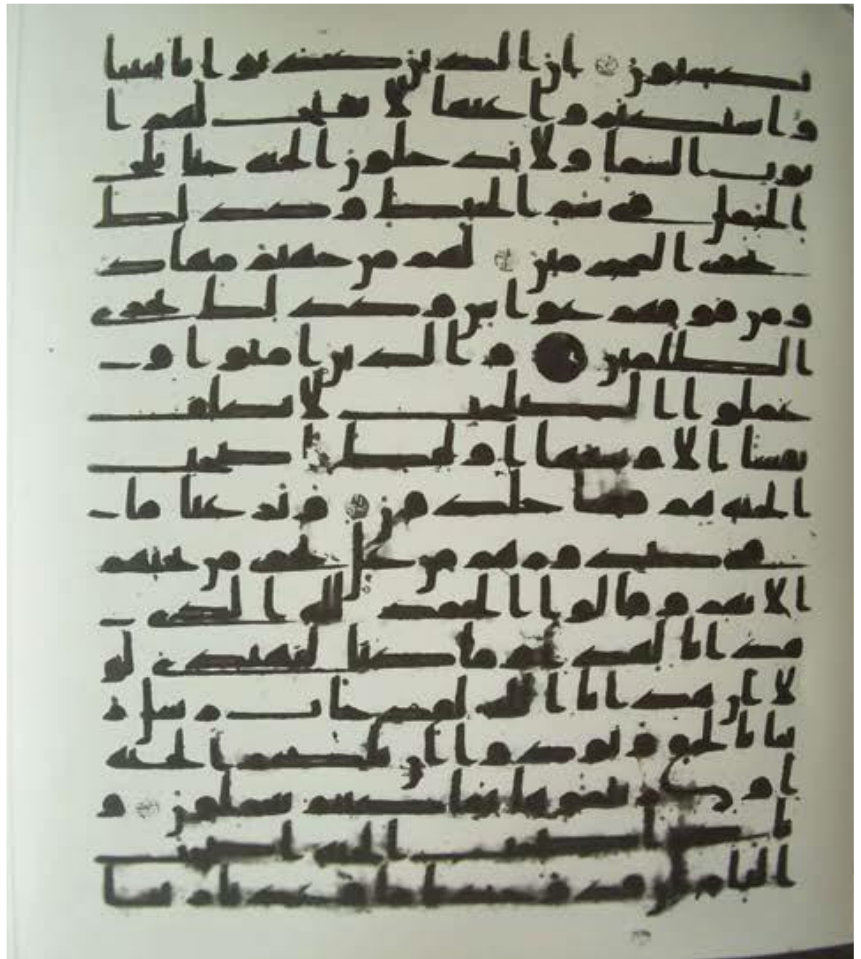 تكسبون ان الذين كذبوا بايتنا
واستكبروا عنها لا تفتح لهم ا
بوب السما ولا يدخلون الجنة حتى يلج
الجمل في سم الخياط وكذلك
نجزي المجرمين لهم من جهنم مهاد
ومن فوقهم غواش وكذلك نجزي
الظلمين والذين امنوا و
عملوا الصلحت لا نكلف
نفسا الا وسعها اولئك اصحب
الجنة هم فيها خلدون ونزعنا ما
في صدورهم من غل تجري من تحتهم
الانهر وقالوا الحمد لله الذي
هدانا لهذا وما كنا لنهتدي لو
لا ان هدانا الله لقد جات رسل ر
بنا بالحق ونودوا ان تلكم الجنة
اورثتموها بما كنتم تعملون و
نادى اصحب الجنة اصحب
النار ان قد وجدنا ما وعدنا ربنا